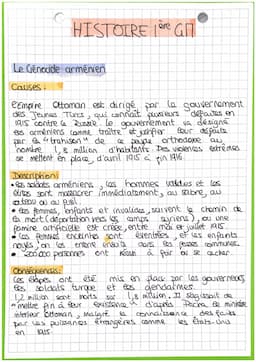 HISTOIRE 1ère G7
Le Génocide arménien
Causes :
L'Empire Ottoman est dirigé par le gouvernement
des Jeunes Turcs, qui connaît plusieurs défaites en
1915 contre la Russie. Le gouvernement va désigné
les arméniens comme traître et justifier leur défaite
par la "trahison" de ce peuple orthodoxe au
nombre 1,8 million d'habitants. Des violences extrêmes
se mettent en place, d'avril 1915 à fin 1916.
Description :
les soldats arméniens, les hommes valides et les
élites sont massacrer immédiatement, au sabre, au
couteau ou au fusil.
les femmes, enfants et invalides, suivent le chemin de
la mort (déportation vers les camps syriens), ou une
famine artificielle est créée, entre mai et juillet 1915.
les femmes enceintes sont éventrées, et les enfants
noyés, on les enterre ensuite dans des fosses communes.
200 000 personnes ont réussi à fuir ou se cacher.
Conséquences :
Les étapes ont été mis en place par les gouverneurs,
les soldats turque et les gendarmes.
1,2 million sont morts sur 1,8 million. Il s'agissait de
"mettre fin à leur existence" d'après Pacha, le ministre
intérieur ottoman, malgré la connaissance des faits
par les puissances étrangères comme les États-unis
en 1915.